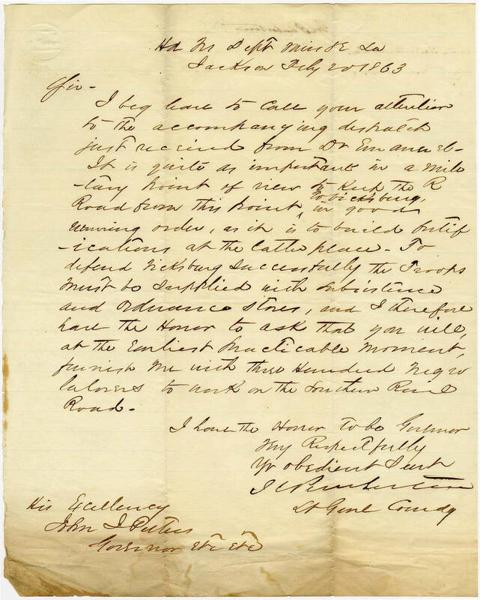 Hd Qrs Dept Miss & E La
Jackson Feby 20 1863
Sir -
I beg leave to call your attention
to the accompanying despatch
just received from Dr Emanuel -
It is quite as important in a mili
-tary point of view to keep the R
Road from this point, to Vicksburg, in good
running order, as it is to build fortif
-ications at the latter place - To
defend Vicksburg successfully the Troops
must be supplied with subsistence
and ordnance stores, and I therefore
have the Honor to ask that you will,
at the Earliest practicable moment,
furnish me with three Hundred Negro
laborers to work on the Southern Rail
Road -
I have the Honor to be Governor
Very Respectfully
Yr obedient Servt
J C Pemberton
Lt Genl Comdg
His Excellency
John J Pettus
Governor etc etc